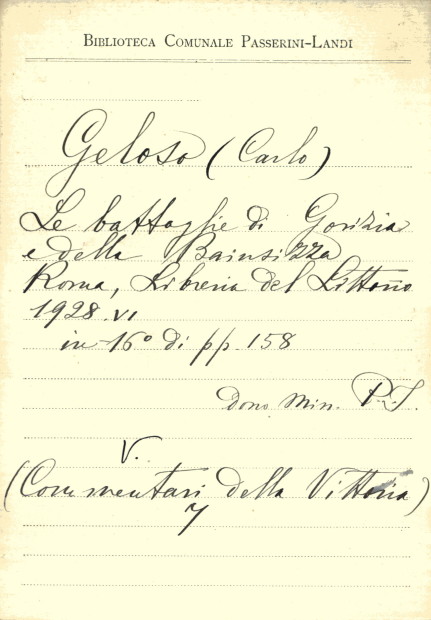 BIBLIOTECA COMUNALE PASSERINI-LANDI
Geloso (Carlo)
Le battaglie di Gorizia
e della Bainsizza
Roma, Libreria del Littorio
1928. VI
in 16° di pp. 158
Dono Min. P. I.
V.
(Commentari della Vittoria)
7